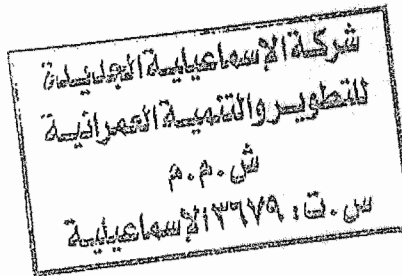 شركة الإسماعيلية الجديدة
للتطوير والتنمية العمرانية
ش.م.م
س.ت: ٣٦٧٩ الإسماعيلية